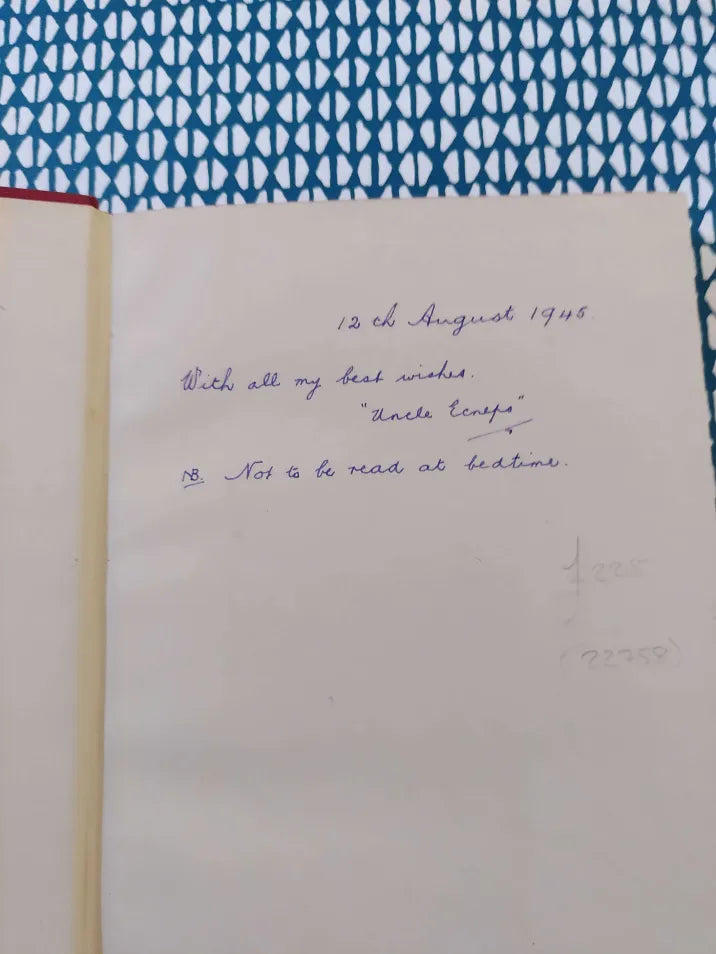 12th August 1945.
With all my best wishes.
"Uncle Ecneps"
NB. Not to be read at bedtime.
225
(22758)